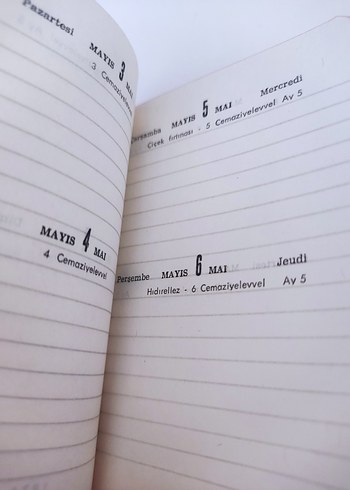 Pazartesi MAYIS 3
3
MAYIS 4 MAI
4 Cemaziyelevvel
MAYIS 5 MAI Mercredi
Çiçek fırtınası - 5 Cemaziyelevvel Ay 5
Perşembe MAYIS 6 MAI Jeudi
Hıdırellez - 6 Cemaziyelevvel Ay 5